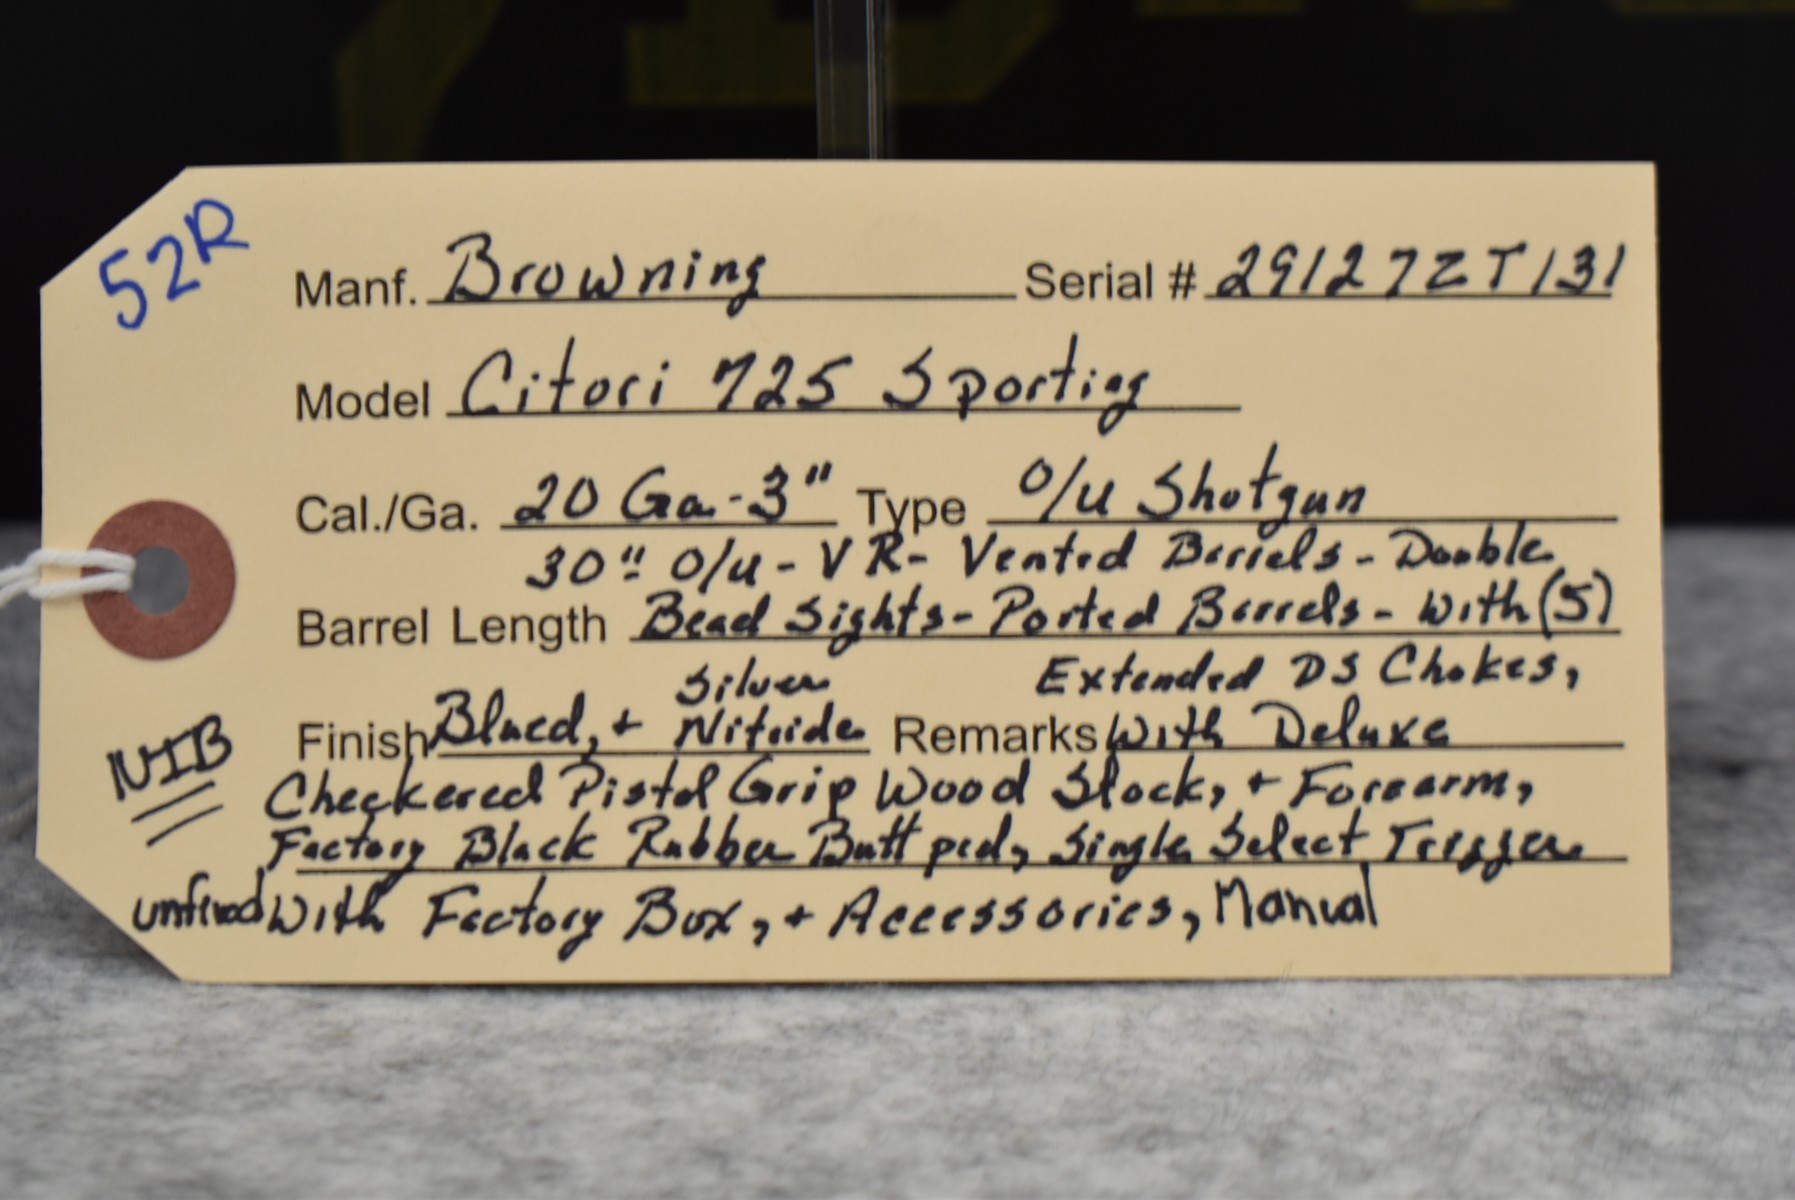 52R
Manf. Browning Serial # 29127ZT131
Model Citori 725 Sporting
Cal./Ga. 20 Ga.-3" Type O/U Shotgun
30" O/U - VR - Vented Barrels - Double
Barrel Length Bead Sights - Ported Barrels - With (5)
Silver Extended DS Chokes,
Finish Blued, + Nitride Remarks With Deluxe
NIB
Checkered Pistol Grip Wood Stock, + Forearm,
Factory Black Rubber Butt pad, Single Select Trigger
unfired With Factory Box, + Accessories, Manual